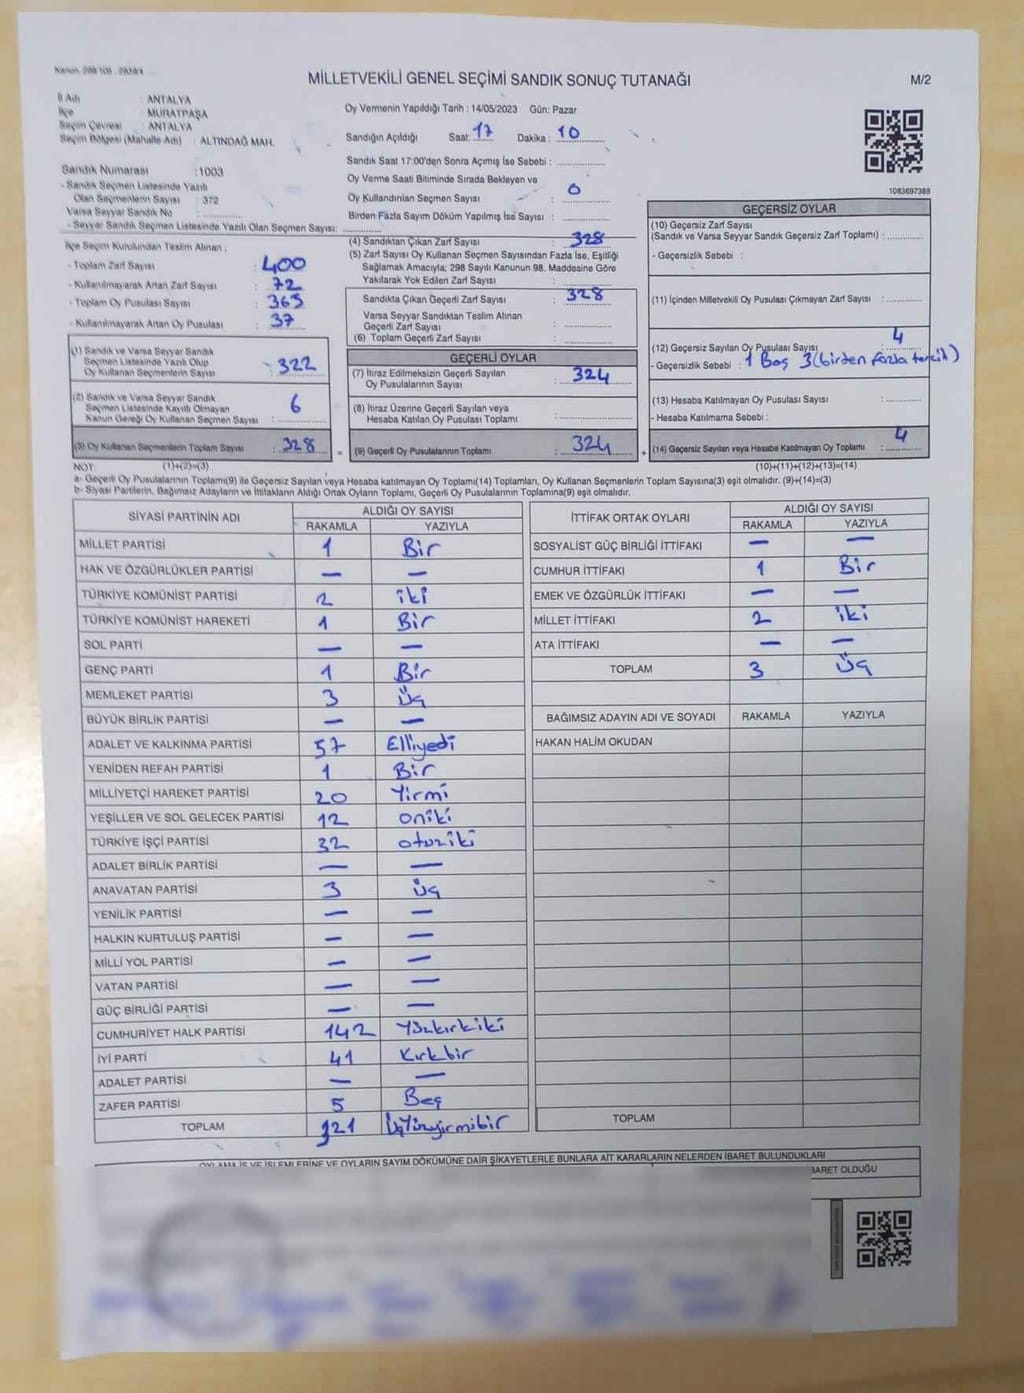 MİLLETVEKİLİ GENEL SEÇİMİ SANDIK SONUÇ TUTANAĞI
M/2
İl Adı : ANTALYA
İlçe : MURATPAŞA
Seçim Çevresi : ANTALYA
Seçim Bölgesi (Mahalle Adı) : ALTINDAĞ MAH.
Oy Vermenin Yapıldığı Tarih : 14/05/2023 Gün: Pazar
Sandığın Açıldığı Saat: 17 Dakika : 10
Sandık Saat 17:00'den Sonra Açımış İse Sebebi :
Oy Verme Saati Bitiminde Sırada Bekleyen ve
Oy Kullandırılan Seçmen Sayısı : 0
Birden Fazla Sayım Döküm Yapılmış İse Sayısı :
1083697388
Sandık Numarası : 1003
- Sandık Seçmen Listesinde Yazılı
Olan Seçmenlerin Sayısı 372
Varsa Seyyar Sandık No
- Seyyar Sandık Seçmen Listesinde Yazılı Olan Seçmen Sayısı:
İlçe Seçim Kurulundan Teslim Alınan ;
- Toplam Zarf Sayısı : 400
- Kullanılmayarak Artan Zarf Sayısı : 72
- Toplam Oy Pusulası Sayısı : 365
- Kullanılmayarak Artan Oy Pusulası : 37
(1) Sandık ve Varsa Seyyar Sandık
Seçmen Listesinde Yazılı Olup
Oy Kullanan Seçmenlerin Sayısı : 322
(2) Sandık ve Varsa Seyyar Sandık
Seçmen Listesinde Kayıtlı Olmayan
Kanun Gereği Oy Kullanan Seçmen Sayısı : 6
(3) Oy Kullanan Seçmenlerin Toplam Sayısı : 328
(4) Sandıktan Çıkan Zarf Sayısı : 328
(5) Zarf Sayısı Oy Kullanan Seçmen Sayısından Fazla İse, Eşitliği
Sağlamak Amacıyla; 298 Sayılı Kanunun 98. Maddesine Göre
Yakılarak Yok Edilen Zarf Sayısı :
Sandıkta Çıkan Geçerli Zarf Sayısı : 328
Varsa Seyyar Sandıktan Teslim Alınan
Geçerli Zarf Sayısı :
(6) Toplam Geçerli Zarf Sayısı :
GEÇERLİ OYLAR
(7) İtiraz Edilmeksizin Geçerli Sayılan
Oy Pusulalarının Sayısı : 324
(8) İtiraz Üzerine Geçerli Sayılan veya
Hesaba Katılan Oy Pusulası Toplamı :
= (9) Geçerli Oy Pusulalarının Toplamı : 324 +
GEÇERSİZ OYLAR
(10) Geçersiz Zarf Sayısı
(Sandık ve Varsa Seyyar Sandık Geçersiz Zarf Toplamı) :
- Geçersizlik Sebebi :
(11) İçinden Milletvekili Oy Pusulası Çıkmayan Zarf Sayısı :
(12) Geçersiz Sayılan Oy Pusulası Sayısı : 4
- Geçersizlik Sebebi : 1 Boş 3 (birden fazla tercih)
(13) Hesaba Katılmayan Oy Pusulası Sayısı :
- Hesaba Katılmama Sebebi :
(14) Geçersiz Sayılan veya Hesaba Katılmayan Oy Toplamı : 4
NOT: (1)+(2)=(3)
(10)+(11)+(12)+(13)=(14)
a- Geçerli Oy Pusulalarının Toplamı(9) ile Geçersiz Sayılan veya Hesaba katılmayan Oy Toplamı(14) Toplamları, Oy Kullanan Seçmenlerin Toplam Sayısına(3) eşit olmalıdır. (9)+(14)=(3)
b- Siyasi Partilerin, Bağımsız Adayların ve İttifakların Aldığı Ortak Oyların Toplamı, Geçerli Oy Pusulalarının Toplamına(9) eşit olmalıdır.
SİYASİ PARTİNİN ADI ALDIĞI OY SAYISI
RAKAMLA YAZIYLA
MİLLET PARTİSİ 1 Bir
HAK VE ÖZGÜRLÜKLER PARTİSİ — —
TÜRKİYE KOMÜNİST PARTİSİ 2 iki
TÜRKİYE KOMÜNİST HAREKETİ 1 Bir
SOL PARTİ — —
GENÇ PARTİ 1 Bir
MEMLEKET PARTİSİ 3 Üç
BÜYÜK BİRLİK PARTİSİ — —
ADALET VE KALKINMA PARTİSİ 57 Elliyedi
YENİDEN REFAH PARTİSİ 1 Bir
MİLLİYETÇİ HAREKET PARTİSİ 20 Yirmi
YEŞİLLER VE SOL GELECEK PARTİSİ 12 oniki
TÜRKİYE İŞÇİ PARTİSİ 32 otuziki
ADALET BİRLİK PARTİSİ — —
ANAVATAN PARTİSİ 3 Üç
YENİLİK PARTİSİ — —
HALKIN KURTULUŞ PARTİSİ — —
MİLLİ YOL PARTİSİ — —
VATAN PARTİSİ — —
GÜÇ BİRLİĞİ PARTİSİ — —
CUMHURİYET HALK PARTİSİ 142 Yüzkırkiki
İYİ PARTİ 41 Kırkbir
ADALET PARTİSİ — —
ZAFER PARTİSİ 5 Beş
TOPLAM 321 Üçyüzyirmibir
İTTİFAK ORTAK OYLARI ALDIĞI OY SAYISI
RAKAMLA YAZIYLA
SOSYALİST GÜÇ BİRLİĞİ İTTİFAKI — —
CUMHUR İTTİFAKI 1 Bir
EMEK VE ÖZGÜRLÜK İTTİFAKI — —
MİLLET İTTİFAKI 2 iki
ATA İTTİFAKI — —
TOPLAM 3 Üç
BAĞIMSIZ ADAYIN ADI VE SOYADI RAKAMLA YAZIYLA
HAKAN HALİM OKUDAN
TOPLAM
OYLAMA İŞ VE İŞLEMLERİNE VE OYLARIN SAYIM DÖKÜMÜNE DAİR ŞİKAYETLERLE BUNLARA AİT KARARLARIN NELERDEN İBARET BULUNDUKLARI
BARET OLDUĞU